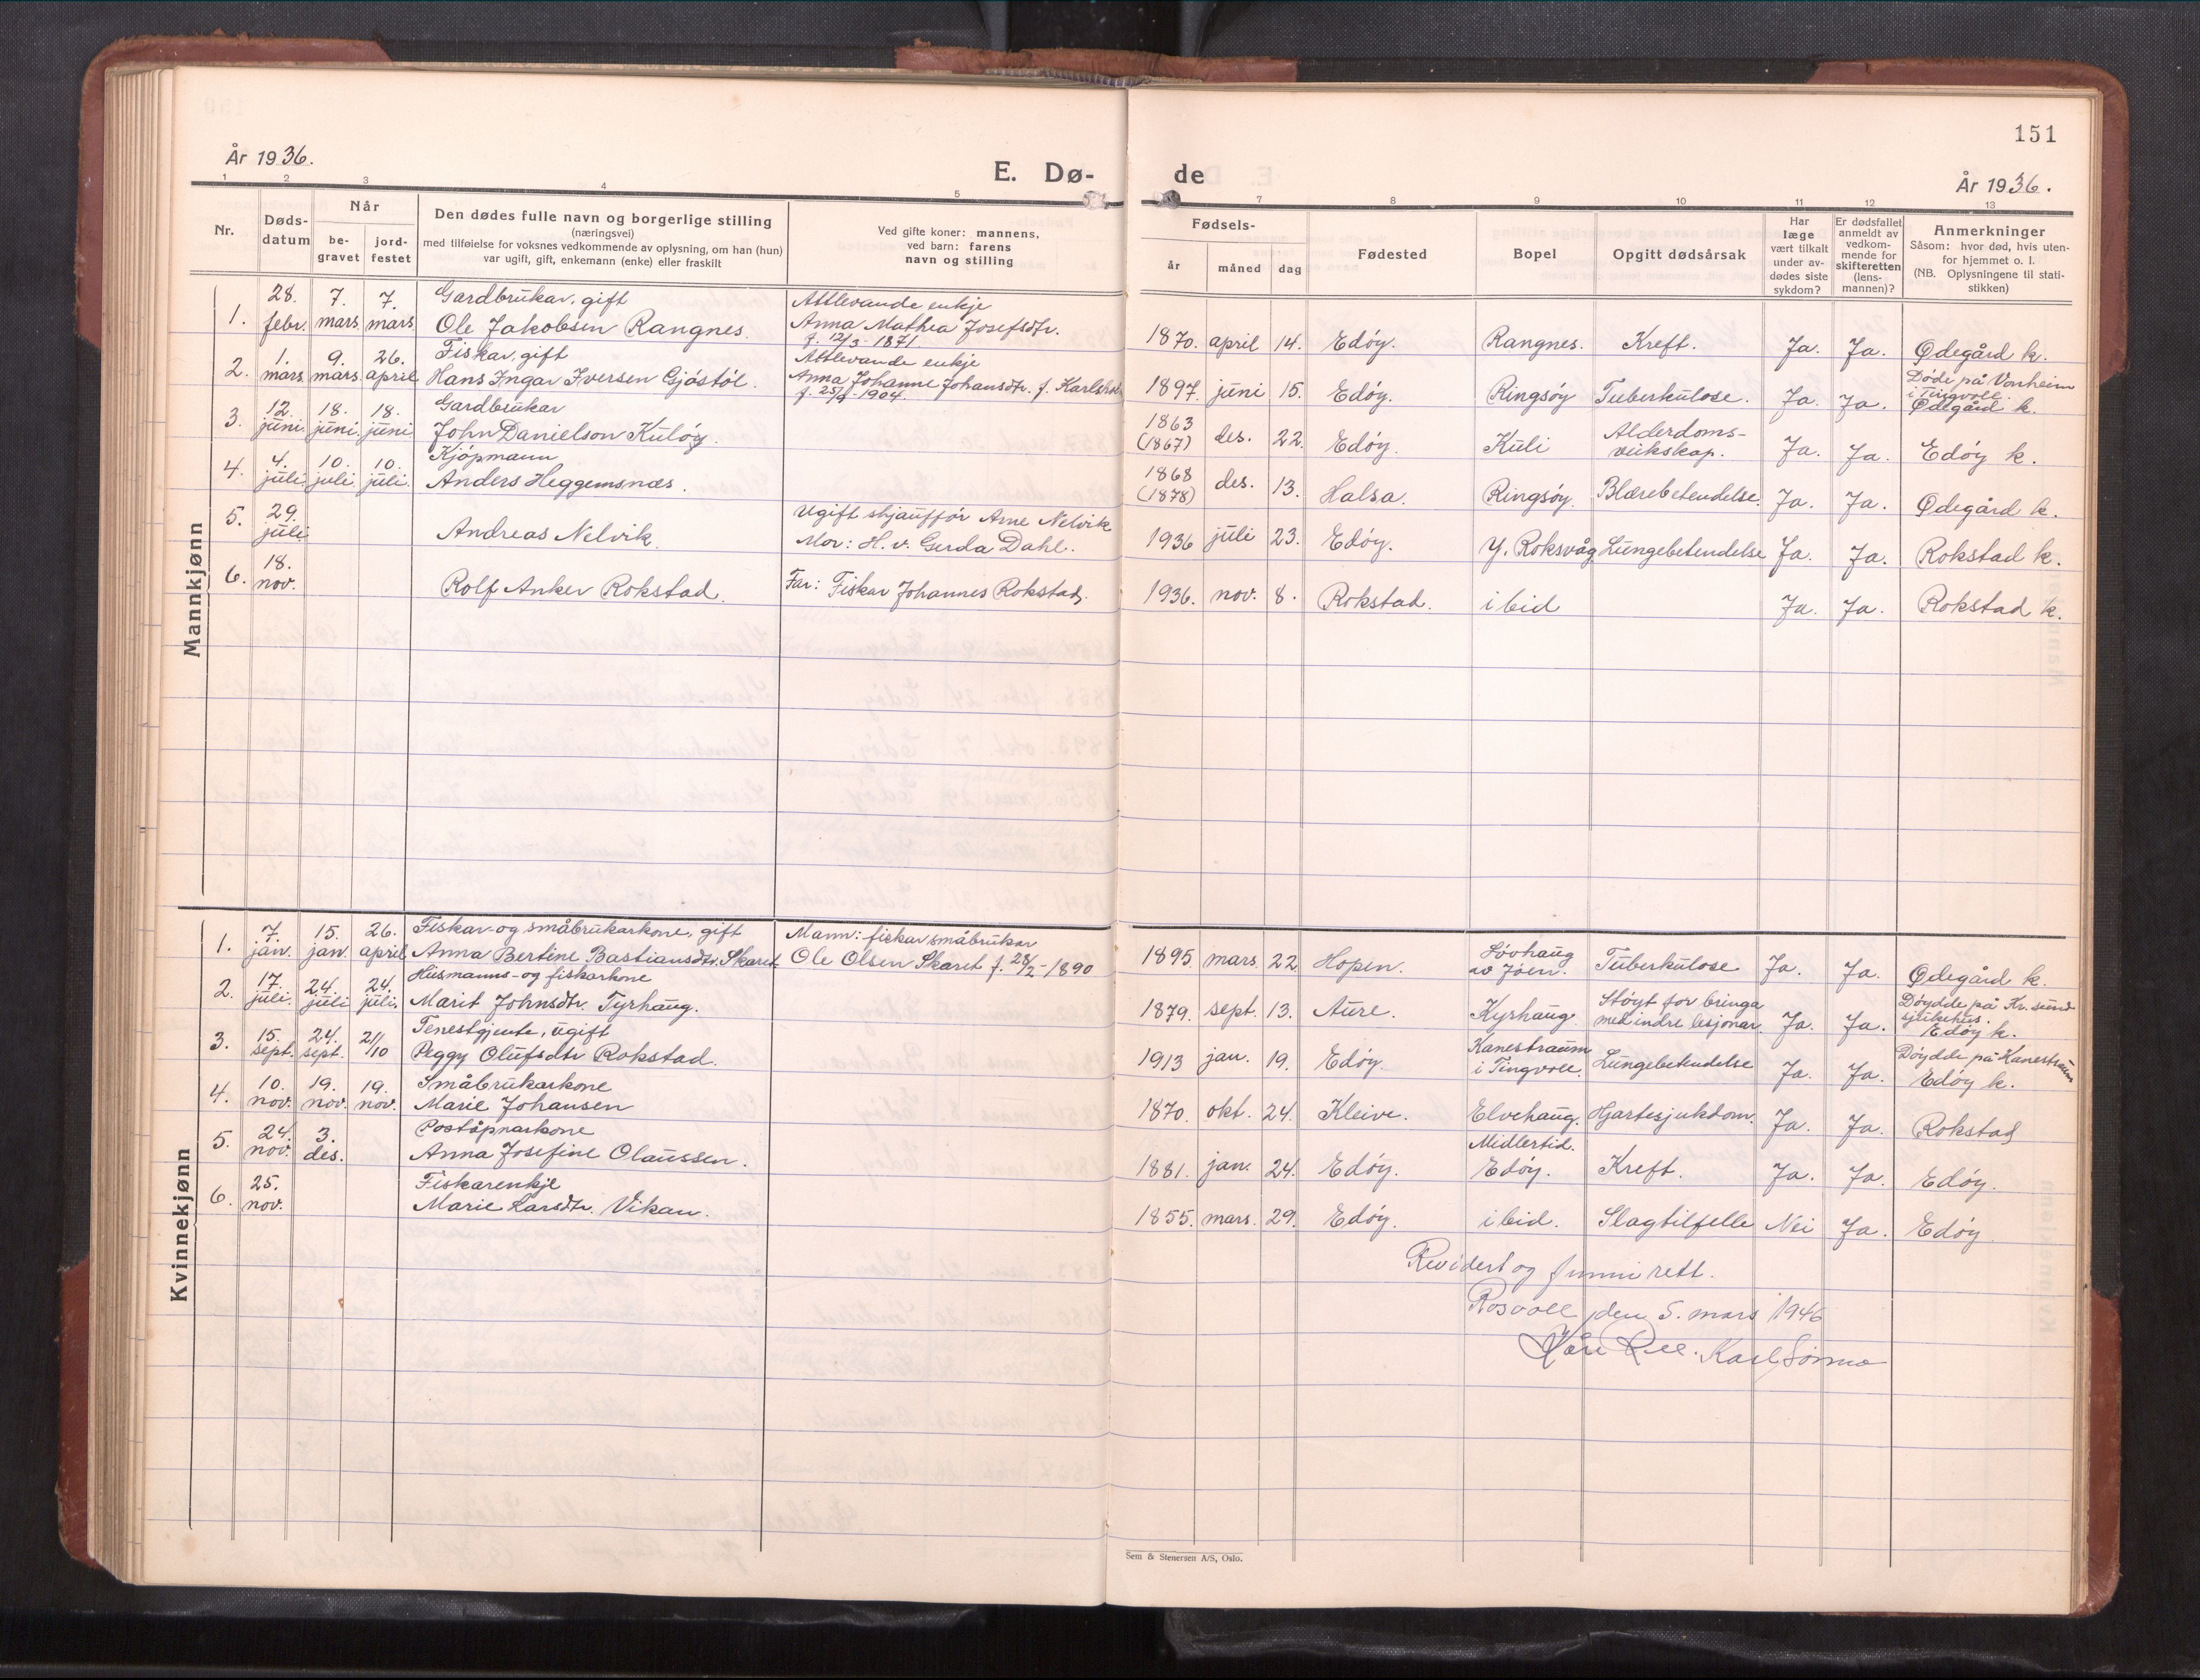 151
År 1936.
E. Dø-
de
År 1936.
1 2 3 4 5 7 8 9 10 11 12 13
Nr.
Døds-
datum
Når
be-
gravet
jord-
festet
Den dødes fulle navn og borgerlige stilling
(næringsvei)
med tilføielse for voksnes vedkommende av oplysning, om han (hun)
var ugift, gift, enkemann (enke) eller fraskilt
Ved gifte koner: mannens,
ved barn: farens
navn og stilling
Fødsels-
år måned dag
Fødested
Bopel
Opgitt dødsårsak
Har
læge
vært tilkalt
under av-
dødes siste
sykdom?
Er dødsfallet
anmeldt av
vedkom-
mende for
skifteretten
(lens-
mannen)?
Anmerkninger
Såsom: hvor død, hvis uten-
for hjemmet o. l.
(NB. Oplysningene til stati-
stikken)
Mannkjønn
1. 28. febr. 7. mars 7. mars
Gardbrukar, gift
Ole Jakobsen Rangnes.
Attlevande enkje
Anna Mathea Josefsdtr.
f. 12/3-1871
1870. april 14. Edøy. Rangnes. Kreft. Ja. Ja. Ødegård k.
2. 1. mars 9. mars 26. april
Fiskar, gift
Hans Ingar Iversen Gjøstøl.
Attlevande enkje
Anna Johanne Johansdtr. f. Karlsbak
f. 25/9-1904.
1897. juni 15. Edøy. Ringsøy Tuberkulose. Ja. Ja.
Døde på Vonheim
i Tingvoll.
Ødegård k.
3. 12. juni. 18. juni. 18. juni
Gardbrukar
John Danielson Kuløy.
1863
(1867) des. 22. Edøy. Kuli
Alderdoms-
veikskap. Ja. Ja. Edøy k.
4. 4. juli. 10. juli. 10. juli.
Kjøpmann
Anders Heggemsnes.
1868
(1878) des. 13. Halsa. Ringsøy. Blærebetendelse. Ja. Ja. Ødegård k.
5. 29. juli
Andreas Nelvik.
Ugift skjauffør Arne Nelvik
Mor: H. v. Gerda Dahl.
1936 juli 23. Edøy. Y. Roksvåg Lungebetendelse Ja. Ja. Rokstad k.
6. 18. nov.
Rolf Anker Rokstad.
Far: Fiskar Johannes Rokstad.
1936. nov. 8. Rokstad. ibid Ja. Ja. Rokstad k.
Kvinnekjønn
1. 7. jan. 15. jan. 26. april
Fiskar- og småbrukarkone, gift
Anna Bertine Bastiansdtr. Skaret
Mann: fiskar småbrukar
Ole Olsen Skaret f. 28/2-1890
1895. mars 22 Hopen.
Løvhaug
av Jøen. Tuberkulose Ja. Ja. Ødegård k.
2. 17. juli. 24. juli 24. juli.
Husmanns- og fiskarkone
Marit Johnsdtr. Tyrhaug.
1879. sept. 13. Aure. Kyrhaug.
Støyt for bringa
med indre lesjonar. Ja. Ja.
Døydde på Kr. sund
sjukehus.
Edøy k.
3. 15. sept. 24. sept. 21/10
Tenestgjente, ugift
Peggy Olufsdtr Rokstad.
1913 jan. 19. Edøy.
Kanestraum
i Tingvoll. Lungebetendelse Ja. Ja.
Døydde på Kanestraum
Edøy k.
4. 10. nov. 19. nov. 19. nov.
Småbrukarkone
Marie Johansen
1870. okt. 24. Kleive. Elvehaug. Hjartesjukdom. Ja. Ja. Rokstad
5. 24. nov. 3. des.
Poståpnarkone
Anna Josefine Olaussen.
1881. jan. 24. Edøy.
Midlertid.
Edøy. Kreft. Ja. Ja. Edøy.
6. 25. nov.
Fiskarenkje
Marie Larsdtr. Vikan.
1855. mars. 29. Edøy. ibid. Slagtilfelle Nei Ja. Edøy
Revidert og funni rett.
Rosvoll den 5. mars 1946
Karl
Sem & Stenersen A/S, Oslo.